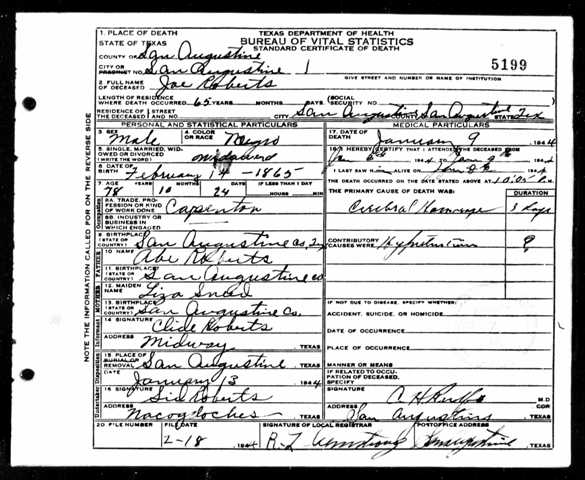 TEXAS DEPARTMENT OF HEALTH
BUREAU OF VITAL STATISTICS
STANDARD CERTIFICATE OF DEATH
1 PLACE OF DEATH
STATE OF TEXAS
COUNTY OF San Augustine
CITY OR PRECINCT NO. San Augustine 1
GIVE STREET AND NUMBER OR NAME OF INSTITUTION
5199
2 FULL NAME OF DECEASED Joe Roberts
LENGTH OF RESIDENCE WHERE DEATH OCCURRED 65 YEARS MONTHS DAYS (SOCIAL SECURITY NO.
RESIDENCE OF THE DECEASED STREET NO. CITY San Augustine San Augustine STATE Tex
PERSONAL AND STATISTICAL PARTICULARS
3 SEX Male 4 COLOR OR RACE Negro
5 SINGLE, MARRIED, WIDOWED OR DIVORCED (WRITE THE WORD) widowed
6 DATE OF BIRTH February 14 - 1865
7 AGE 78 YEARS 10 MONTHS 24 DAYS IF LESS THAN 1 DAY HOURS MIN
8A. TRADE, PROFESSION OR KIND OF WORK DONE Carpenton
8B. INDUSTRY OR BUSINESS IN WHICH ENGAGED
9 BIRTHPLACE (STATE OR COUNTRY) San Augustine Co, Tx
10 NAME Abe Roberts
11 BIRTHPLACE (STATE OR COUNTRY) San Augustine Co
12 MAIDEN NAME Liza Sneed
13 BIRTHPLACE (STATE OR COUNTRY) San Augustine Co.
14 SIGNATURE Clide Roberts
ADDRESS Midway, TEXAS
15 PLACE OF BURIAL OR REMOVAL San Augustine, TEXAS
DATE January 13 1944
16 SIGNATURE Sid Roberts
ADDRESS Nacogdoches TEXAS
MEDICAL PARTICULARS
17 DATE OF DEATH January 9 1944
I HEREBY CERTIFY THAT I ATTENDED THE DECEASED FROM
Jan 6th 1944 TO Jan 9th 1944
I LAST SAW H ALIVE ON Jan 1944
THE DEATH OCCURRED ON THE DATE STATED ABOVE AT 10:05 M.
THE PRIMARY CAUSE OF DEATH WAS: DURATION
Cerebral Hemorrage 3 days
CONTRIBUTORY CAUSES WERE: Hypertension ?
IF NOT DUE TO DISEASE, SPECIFY WHETHER:
ACCIDENT, SUICIDE, OR HOMICIDE
DATE OF OCCURRENCE
PLACE OF OCCURRENCE
MANNER OR MEANS
IF RELATED TO OCCUPATION OF DECEASED, SPECIFY
SIGNATURE M.D OR
ADDRESS San Augustine TEXAS
20 FILE NUMBER FILE DATE 2-18 1944
SIGNATURE OF LOCAL REGISTRAR R. L. Armstrong
POSTOFFICE ADDRESS San Augustine, TEXAS
NOTE THE INFORMATION CALLED FOR ON THE REVERSE SIDE